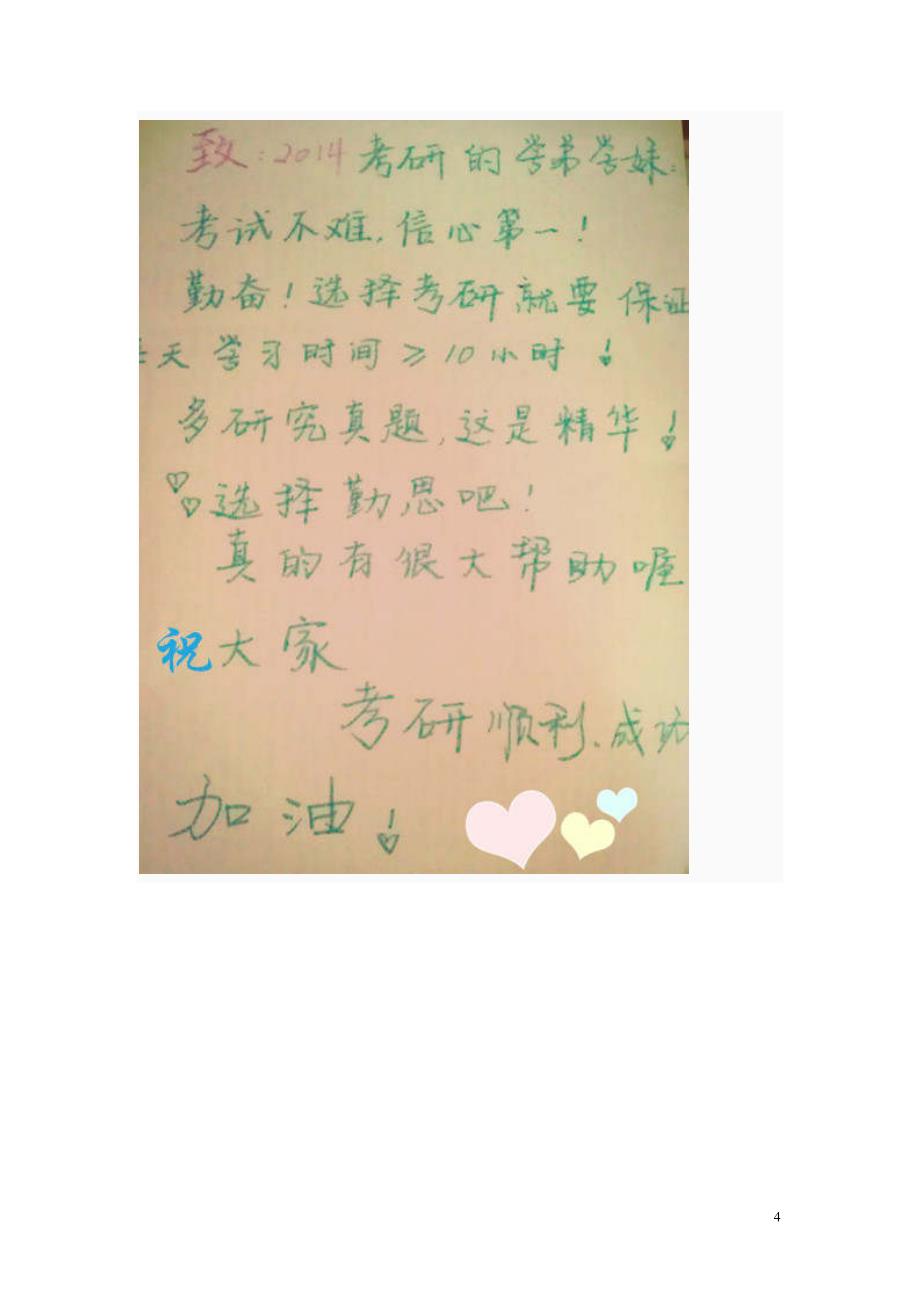 致：2014考研的学弟学妹：
考试不难，信心第一！
勤奋！选择考研就要保证
天学习时间≥10小时！
多研究真题，这是精华！
选择勤思吧！
真的有很大帮助喔
祝大家
考研顺利、成功
加油！
4